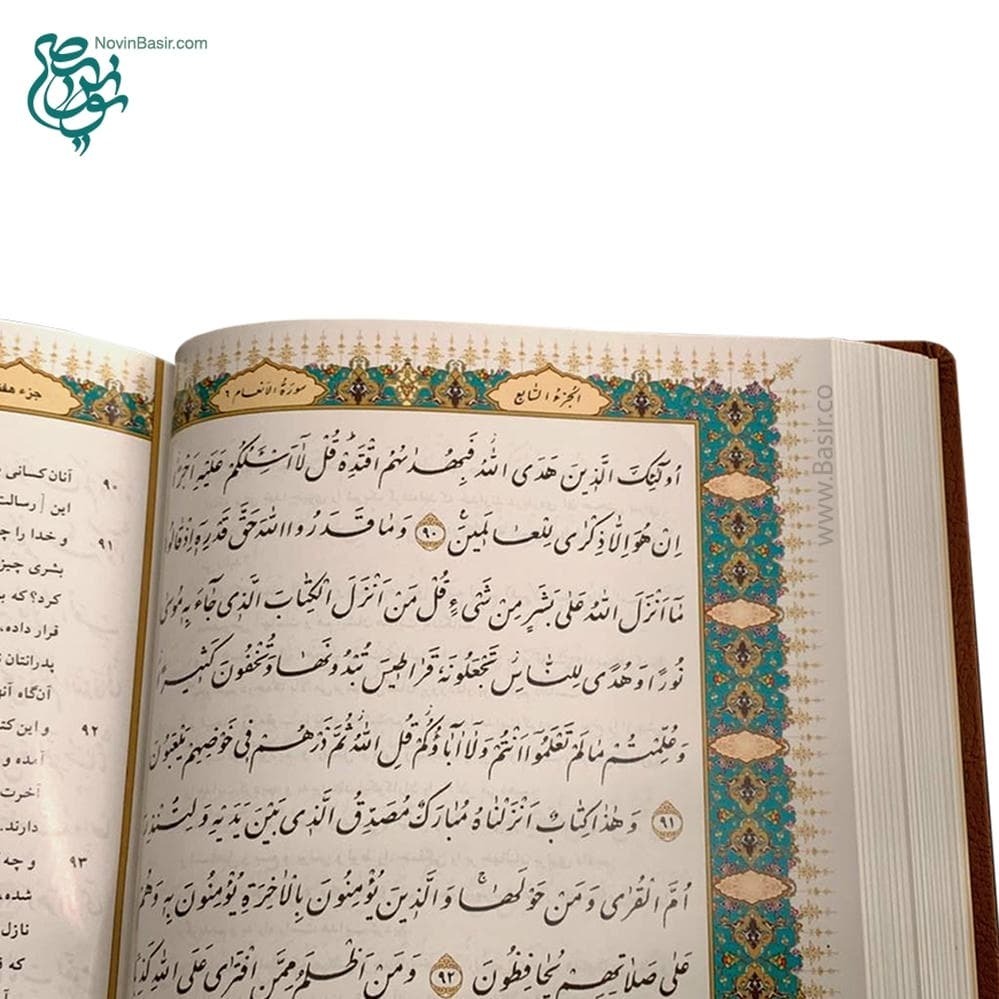 NovinBasir.com
الجزء السابع
سورة الأنعام ٦
أُولٰئِكَ الَّذينَ هَدَى اللّٰهُ فَبِهُدٰىهُمُ اقْتَدِهْ قُلْ لٰا اَسْئَلُكُمْ عَلَيْهِ اَجْرًا
اِنْ هُوَ اِلّٰا ذِكْرٰى لِلْعٰالَمينَ ٩٠ وَمٰا قَدَرُوا اللّٰهَ حَقَّ قَدْرِهِ اِذْ قٰالُوا
مٰا اَنْزَلَ اللّٰهُ عَلٰى بَشَرٍ مِنْ شَيْءٍ قُلْ مَنْ اَنْزَلَ الْكِتٰابَ الَّذى جٰاءَ بِهِ مُوسٰى
نُورًا وَهُدًى لِلنّٰاسِ تَجْعَلُونَهُ قَرٰاطيسَ تُبْدُونَهٰا وَتُخْفُونَ كَثيرًا
وَعُلِّمْتُمْ مٰا لَمْ تَعْلَمُوا اَنْتُمْ وَلٰا اٰبٰاؤُكُمْ قُلِ اللّٰهُ ثُمَّ ذَرْهُمْ فى خَوْضِهِمْ يَلْعَبُونَ
٩١ وَهٰذٰا كِتٰابٌ اَنْزَلْنٰاهُ مُبٰارَكٌ مُصَدِّقُ الَّذى بَيْنَ يَدَيْهِ وَلِتُنْذِرَ
اُمَّ الْقُرٰى وَمَنْ حَوْلَهٰا وَالَّذينَ يُؤْمِنُونَ بِالْاٰخِرَةِ يُؤْمِنُونَ بِهِ وَهُمْ
عَلٰى صَلٰاتِهِمْ يُحٰافِظُونَ ٩٢ وَمَنْ اَظْلَمُ مِمَّنِ افْتَرٰى عَلَى اللّٰهِ
www.Basir.co
جزء
٩٠ آنان کسانی
این [رسالت
٩١ و خدا را
بشری چیز
کرد؟ که
قرار داده،
پدرانتان
آن‌گاه
٩٢ و این
آمده و
آخرت
دارند.
٩٣ و چه
شده،
نازل
که